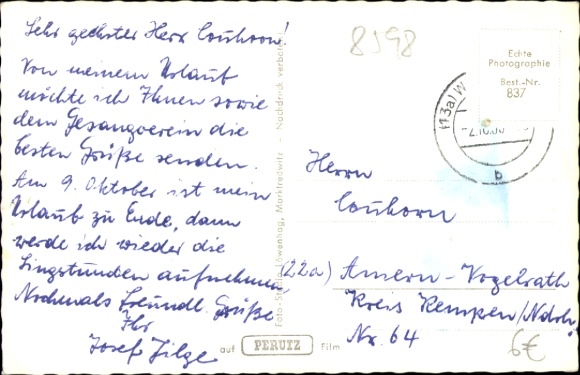 Sehr geehrter Herr Couhorn!
Von meinem Urlaub
möchte ich Ihnen sowie
dem Gesangverein die
besten Grüße senden.
Am 9. Oktober ist mein
Urlaub zu Ende, dann
werde ich wieder die
Singstunden aufnehmen
Nochmals freundl. Grüße
Ihr
Josef Jilge
8598
Echte
Photographie
Best.-Nr.
837
(13a) W
b
Herrn
Couhorn
(22a) Amern-Vogelrath
Kreis Kempen/Ndrh.
Nr. 64
6€
Marktredwitz - Nachdruck verboten
auf PERUTZ Film